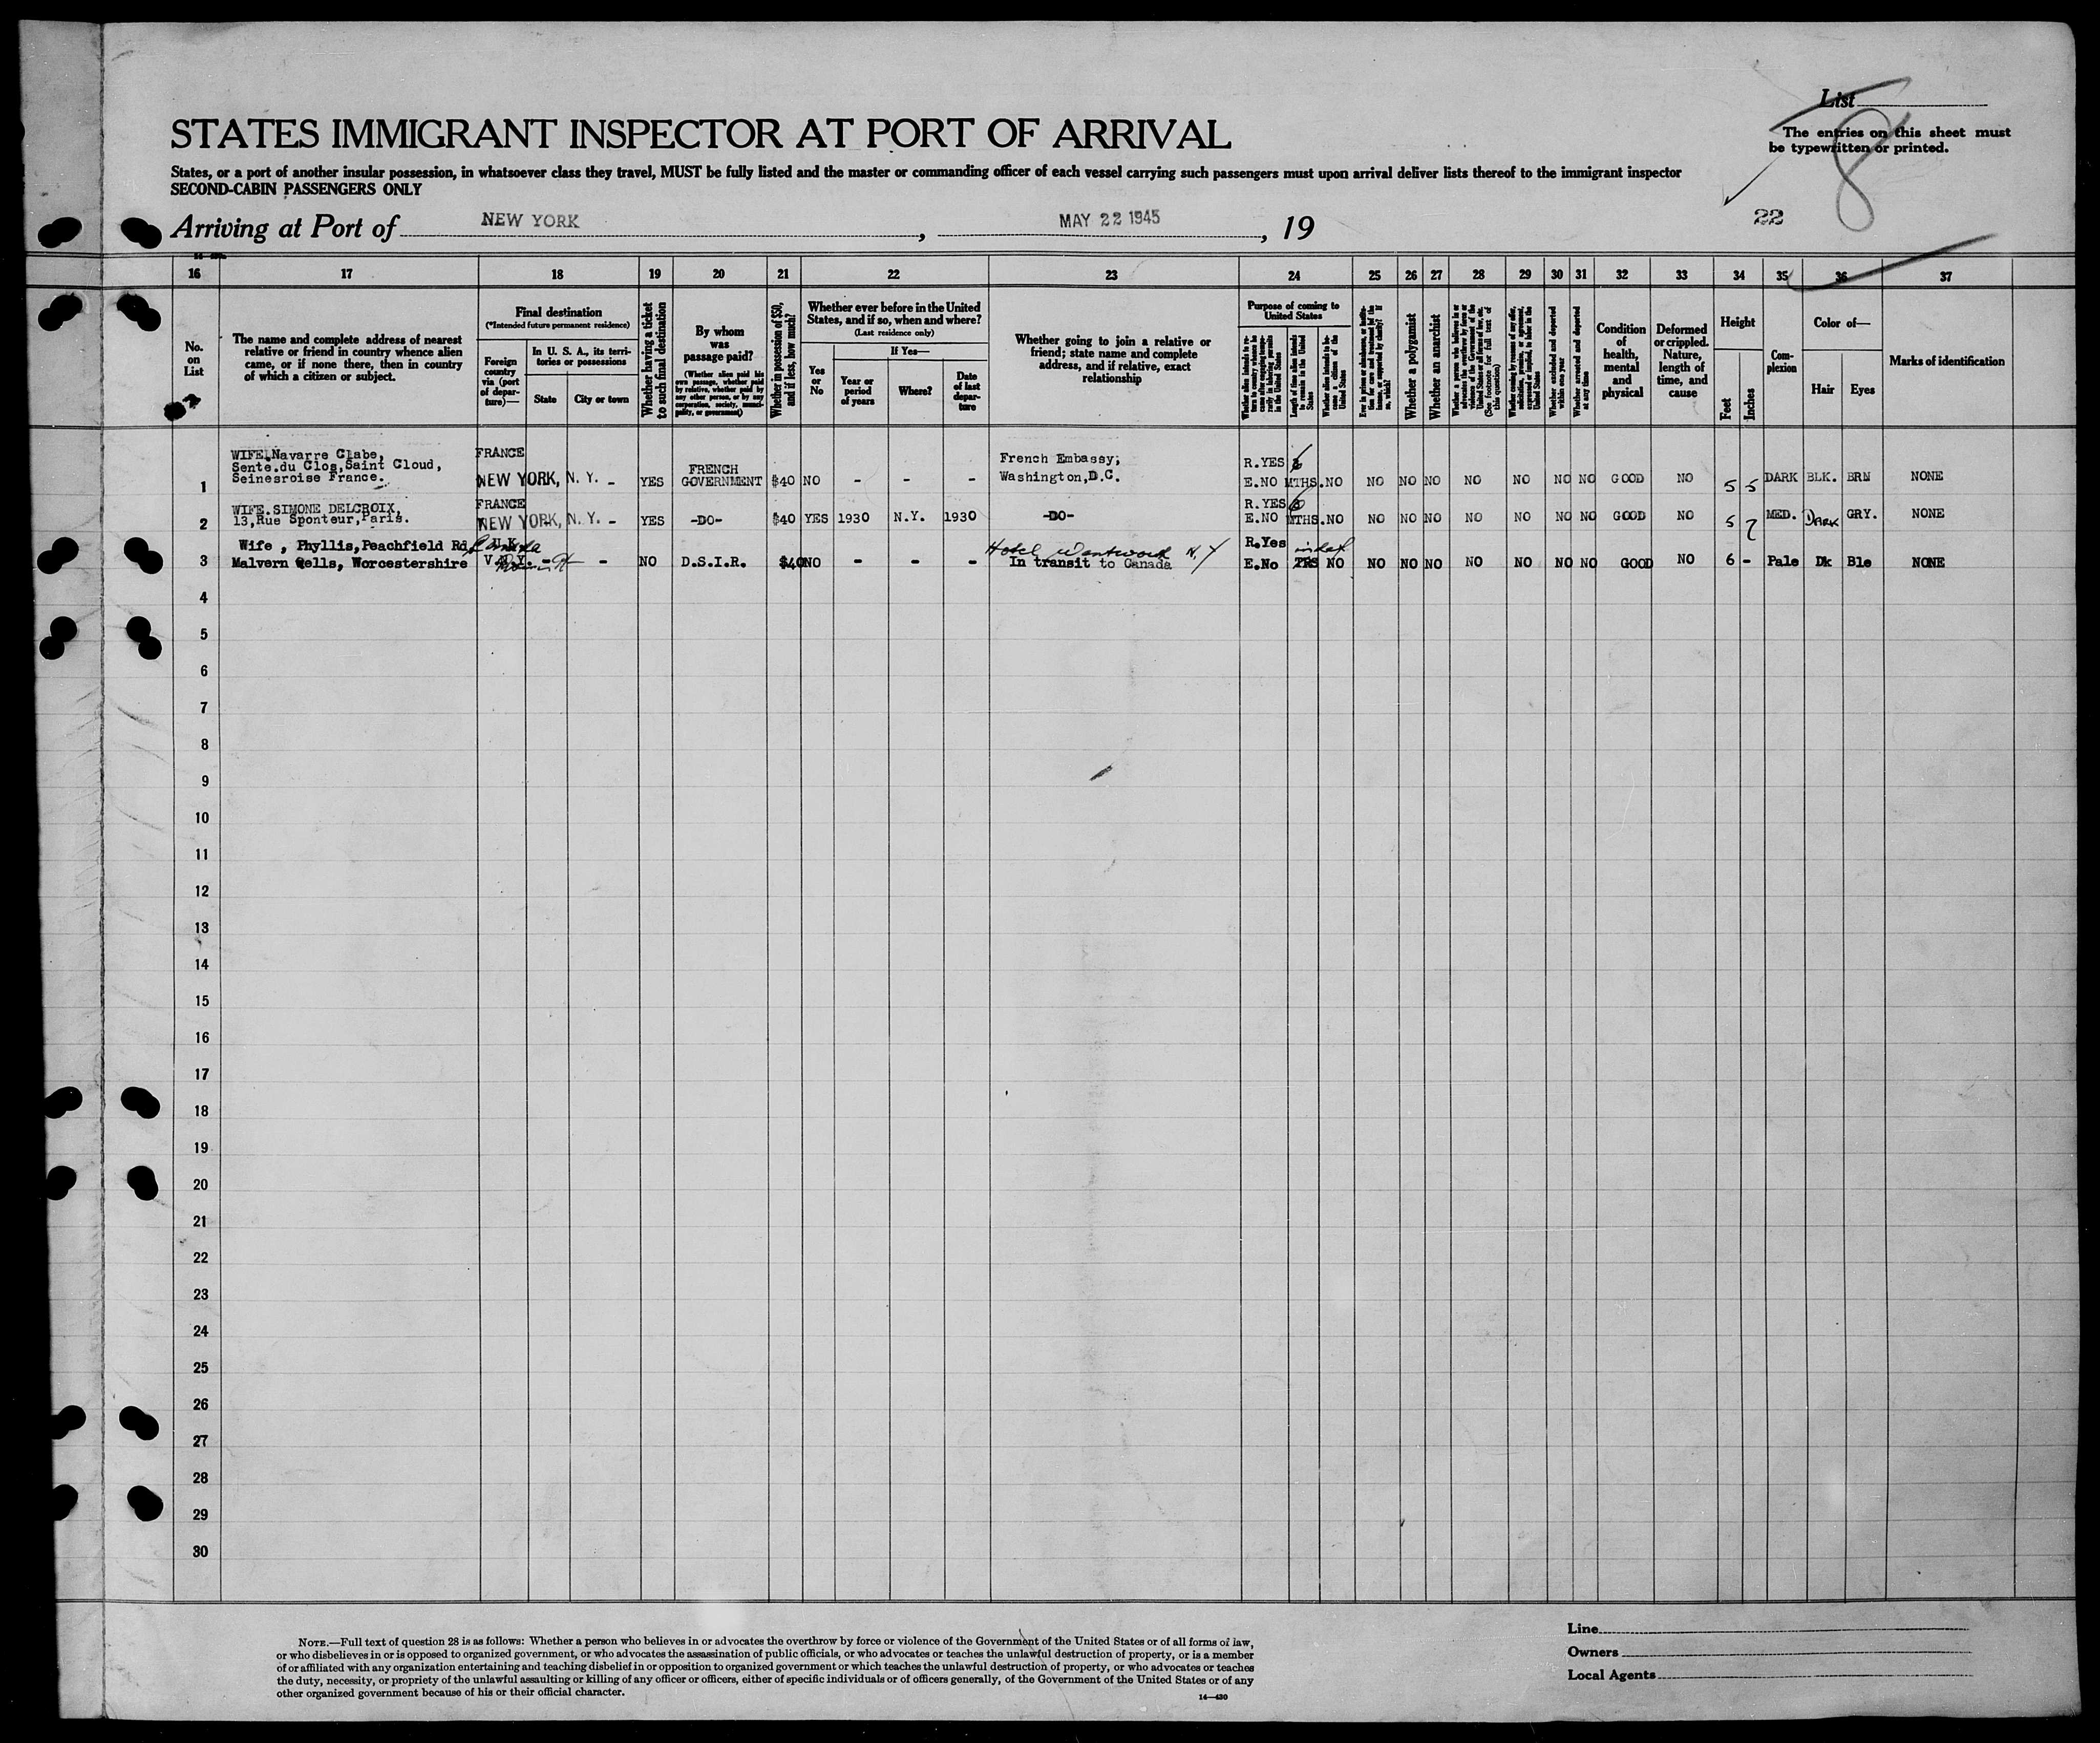 List
The entries on this sheet must
be typewritten or printed.
8
STATES IMMIGRANT INSPECTOR AT PORT OF ARRIVAL
States, or a port of another insular possession, in whatsoever class they travel, MUST be fully listed and the master or commanding officer of each vessel carrying such passengers must upon arrival deliver lists thereof to the immigrant inspector
SECOND-CABIN PASSENGERS ONLY
Arriving at Port of NEW YORK, MAY 22 1945, 19
22
16 17 18 19 20 21 22 23 24 25 26 27 28 29 30 31 32 33 34 35 36 37
No.
on
List
The name and complete address of nearest
relative or friend in country whence alien
came, or if none there, then in country
of which a citizen or subject.
Final destination
(*Intended future permanent residence)
Foreign
country
via (port
of depar-
ture)—
In U. S. A., its terri-
tories or possessions
State
City or town
Whether having a ticket
to such final destination
By whom
was
passage paid?
(Whether alien paid his
own passage, whether paid
by relative, whether paid by
any other person, or by any
corporation, society, munici-
pality, or government)
Whether in possession of $50,
and if less, how much?
Whether ever before in the United
States, and if so, when and where?
(Last residence only)
Yes
or
No
If Yes—
Year or
period
of years
Where?
Date
of last
depar-
ture
Whether going to join a relative or
friend; state name and complete
address, and if relative, exact
relationship
Purpose of coming to
United States
Length of time alien intends
to remain in the United
States
Whether alien intends to be-
come a citizen of the
United States
Whether a polygamist
Whether an anarchist
Whether excluded and deported
within one year
Whether arrested and deported
at any time
Condition
of
health,
mental
and
physical
Deformed
or crippled.
Nature,
length of
time, and
cause
Height
Feet
Inches
Com-
plexion
Color of—
Hair
Eyes
Marks of identification
WIFE.Navarre Clabe, FRANCE French Embassy,
Sente.du Clos,Saint Cloud, FRENCH R.YES 6
1 Seinesroise France. NEW YORK, N. Y. - YES GOVERNMENT $40 NO - - - Washington,D.C. E.NO MTHS. NO NO NO NO NO NO NO NO GOOD NO 5 5 DARK BLK. BRN NONE
WIFE.SIMONE DELCROIX, FRANCE R.YES 6
2 13,Rue Sponteur,Paris. NEW YORK, N. Y. - YES -DO- $40 YES 1930 N.Y. 1930 -DO- E.NO MTHS. NO NO NO NO NO NO NO NO GOOD NO 5 7 MED. DARK GRY. NONE
Wife , Phyllis,Peachfield Rd, U.K. Canada Hotel Wentworth N.Y R.Yes
3 Malvern Wells, Worcestershire - - NO D.S.I.R. $40 NO - - - In transit to Canada E.No NO NO NO NO NO NO NO NO GOOD NO 6 - Pale Dk Ble NONE
4
5
6
7
8
9
10
11
12
13
14
15
16
17
18
19
20
21
22
23
24
25
26
27
28
29
30
NOTE.—Full text of question 28 is as follows: Whether a person who believes in or advocates the overthrow by force or violence of the Government of the United States or of all forms of law,
or who disbelieves in or is opposed to organized government, or who advocates the assassination of public officials, or who advocates or teaches the unlawful destruction of property, or is a member
of or affiliated with any organization entertaining and teaching disbelief in or opposition to organized government or which teaches the unlawful destruction of property, or who advocates or teaches
the duty, necessity, or propriety of the unlawful assaulting or killing of any officer or officers, either of specific individuals or of officers generally, of the Government of the United States or of any
other organized government because of his or their official character.
14—430
Line
Owners
Local Agents